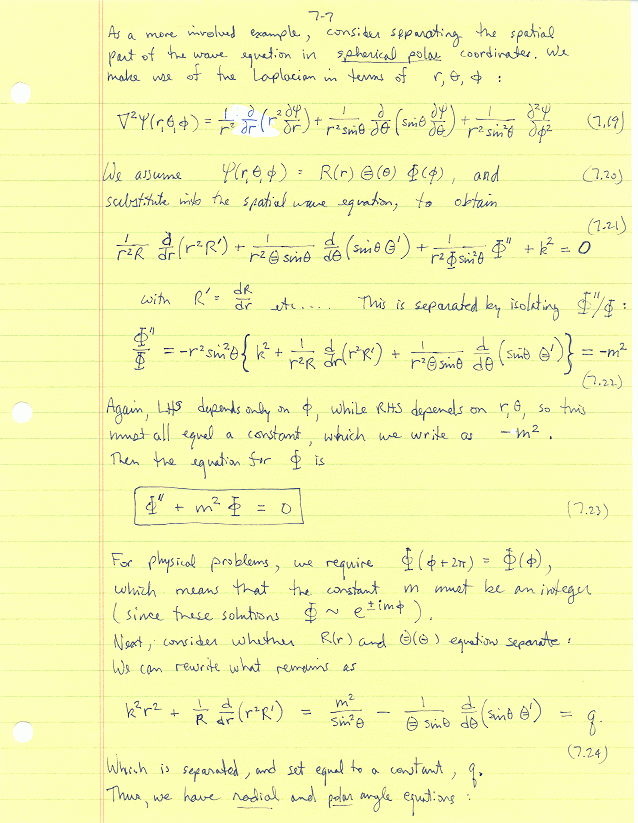 7-7
As a more involved example, consider separating the spatial
part of the wave equation in spherical polar coordinates. We
make use of the Laplacian in terms of r, θ, φ :
∇²Ψ(r,θ,φ) = 1/r² ∂/∂r (r² ∂Ψ/∂r) + 1/(r² sinθ) ∂/∂θ (sinθ ∂Ψ/∂θ) + 1/(r² sin²θ) ∂²Ψ/∂φ² (7.19)
We assume Ψ(r,θ,φ) = R(r) Θ(θ) Φ(φ), and (7.20)
substitute into the spatial wave equation, to obtain
(7.21)
1/(r²R) d/dr (r²R') + 1/(r²Θ sinθ) d/dθ (sinθ Θ') + 1/(r²Φ sin²θ) Φ'' + k² = 0
with R' = dR/dr etc.... This is separated by isolating Φ''/Φ :
Φ''/Φ = -r² sin²θ { k² + 1/(r²R) d/dr (r²R') + 1/(r²Θ sinθ) d/dθ (sinθ Θ') } = -m²
(7.22)
Again, LHS depends only on φ, while RHS depends on r, θ, so this
must all equal a constant, which we write as -m².
Then the equation for Φ is
Φ'' + m² Φ = 0 (7.23)
For physical problems, we require Φ(φ+2π) = Φ(φ),
which means that the constant m must be an integer
(since these solutions Φ ~ e^{±imφ}).
Next, consider whether R(r) and Θ(θ) equation separate :
We can rewrite what remains as
k²r² + 1/R d/dr (r²R') = m²/sin²θ - 1/(Θ sinθ) d/dθ (sinθ Θ') = q.
(7.24)
Which is separated, and set equal to a constant, q.
Thus, we have radial and polar angle equations :